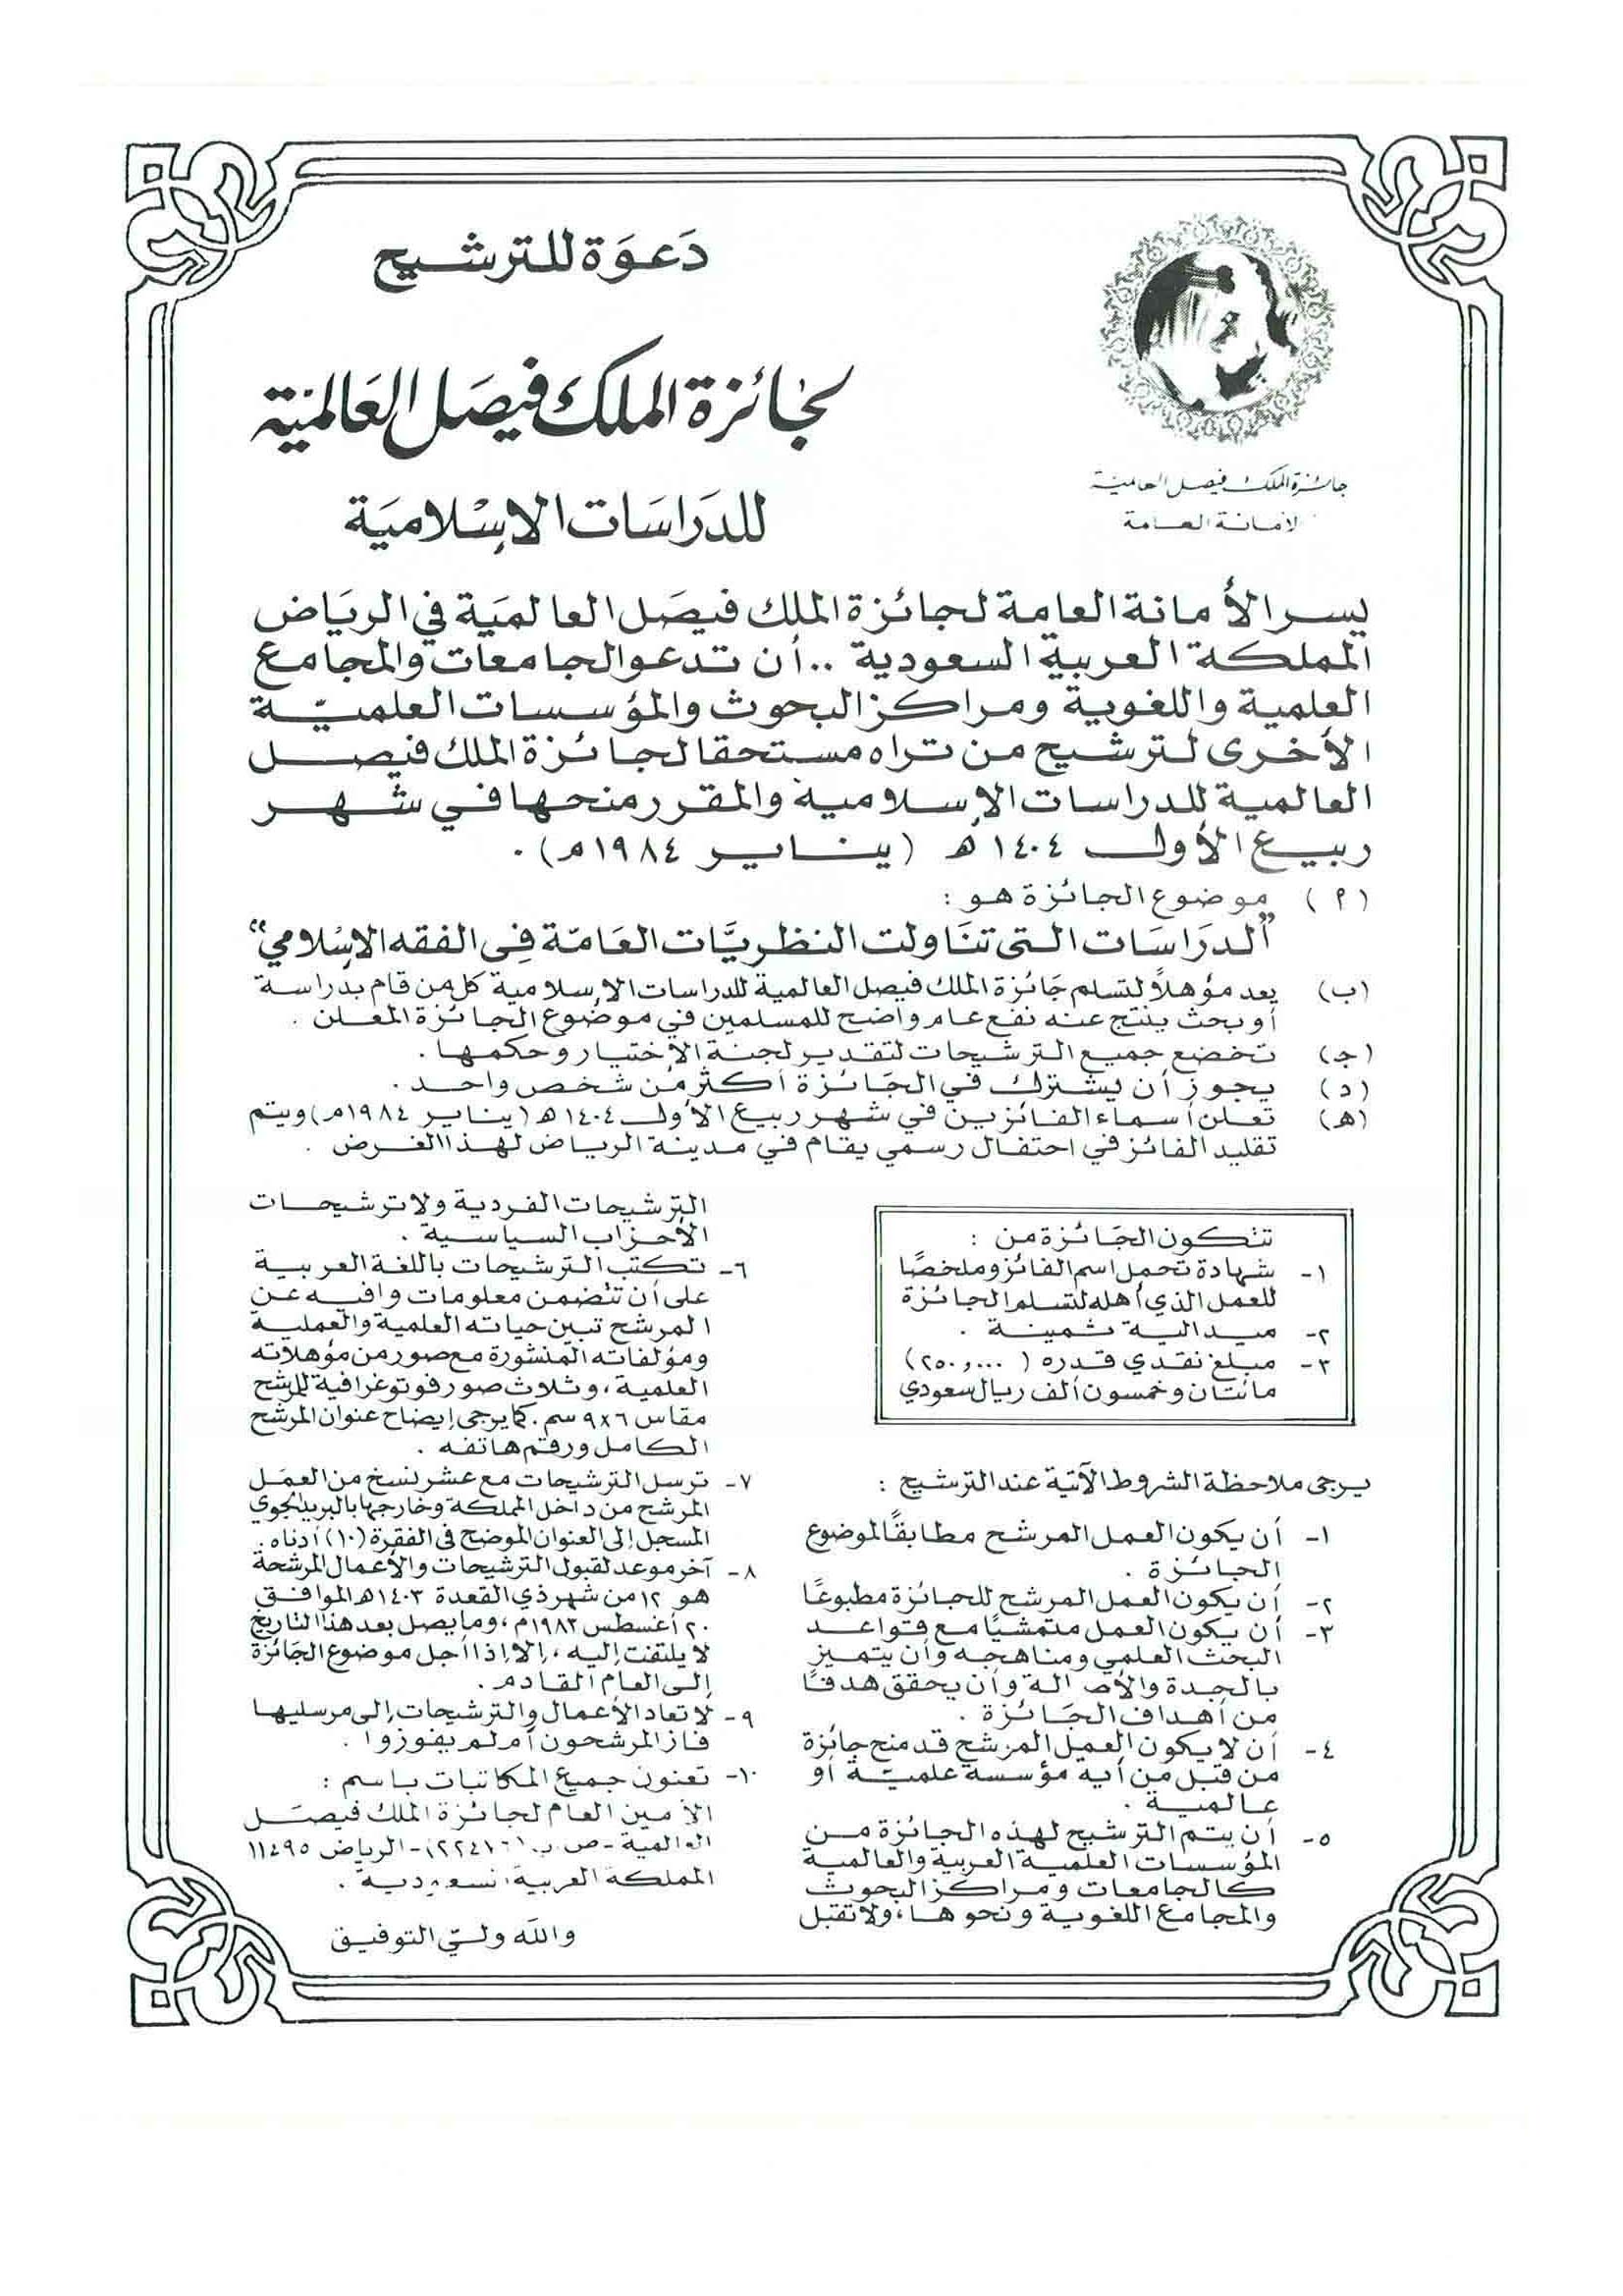 دَعوَة للترشيح
لجَائزة الملك فيصَل العَالميّة
للدرَاسَات الإسْلاميَة
جائزة الملك فيصل العالمية
الأمانة العامة
يسر الأمانة العامة لجائزة الملك فيصَل العالميَة في الريَاض
المملكة العربية السعودية .. أن تدعو الجامعات والمجامع
العلمية واللغوية ومراكز البحوث والمؤسسات العلميّة
الأخرى لترشيح من تراه مستحقا لجائزة الملك فيصل
العالمية للدراسات الإسلامية والمقرر منحها في شهر
ربيع الأول ١٤٠٤ ه (يناير ١٩٨٤ م) .
(أ) موضوع الجائزة هو :
"الدرَاسَات التى تنَاولت النظريَّات العَامّة فى الفقه الإسْلامي"
(ب) يعد مؤهلاً لتسلم جَائزة الملك فيصل العالمية للدراسات الإسلامية كل من قام بدراسة
أو بحث ينتج عنه نفع عام واضح للمسلمين في موضوع الجائزة المعلن .
(ج) تخضع جميع الترشيحات لتقدير لجنة الإختيار وحكمها .
(د) يجوز أن يشترك في الجَائزة أكثر من شخص واحد .
(ه) تعلن أسماء الفائزين في شهر ربيع الأول ١٤٠٤ ه (يناير ١٩٨٤ م) ويتم
تقليد الفائز في احتفال رسمي يقام في مدينة الرياض لهذا الغرض .
تتكون الجَائزة من :
١- شهادة تحمل اسم الفائز وملخصًا
للعمل الذي أهله لتسلم الجائزة
٢- ميدالية ثمينة .
٣- مبلغ نقدي قدره (٢٥٠,٠٠٠)
مائتان وخمسون ألف ريال سعودي
يرجى ملاحظة الشروط الآتية عند الترشيح :
١- أن يكون العمل المرشح مطابقًا لموضوع
الجائزة .
٢- أن يكون العمل المرشح للجائزة مطبوعًا
٣- أن يكون العمل متمشيًا مع قواعد
البحث العلمي ومناهجه وأن يتميز
بالجدة والأصالة وأن يحقق هدفًا
من أهداف الجَائزة .
٤- أن لا يكون العمل المرشح قد منح جائزة
من قبل من أية مؤسسة علميّة أو
عالمية .
٥- أن يتم الترشيح لهذه الجائزة من
المؤسسات العلمية العربية والعالمية
كالجامعات ومراكز البحوث
والمجامع اللغوية ونحوها، ولا تقبل
الترشيحات الفردية ولا ترشيحات
الأحزاب السياسية .
٦- تكتب الترشيحات باللغة العربية
على أن تتضمن معلومات وافيه عن
المرشح تبين حياته العلمية والعملية
ومؤلفاته المنشورة مع صور من مؤهلاته
العلمية، وثلاث صور فوتوغرافية للمرشح
مقاس ٦×٩ سم . كما يرجى إيضاح عنوان المرشح
الكامل ورقم هاتفه .
٧- ترسل الترشيحات مع عشر نسخ من العمَل
المرشح من داخل المملكة وخارجها بالبريد الجوي
المسجل إلى العنوان الموضح فى الفقرة (١٠) أدناه .
٨- آخر موعد لقبول الترشيحات والأعمال المرشحة
هو ١٢ من شهر ذي القعدة ١٤٠٣ ه الموافق
٢٠ أغسطس ١٩٨٣ م، وما يصل بعد هذا التاريخ
لا يلتفت إليه، إلا إذا أجل موضوع الجَائزة
إلى العام القادم .
٩- لا تعاد الأعمال والترشيحات إلى مرسليها
فاز المرشحون أم لم يفوزوا .
١٠- تعنون جميع المكاتبات باسم :
الأمين العام لجائزة الملك فيصَل
العالمية - ص.ب. - الرياض ١١٤٩٥
المملكة العربية السعودية .
والله وليّ التوفيق